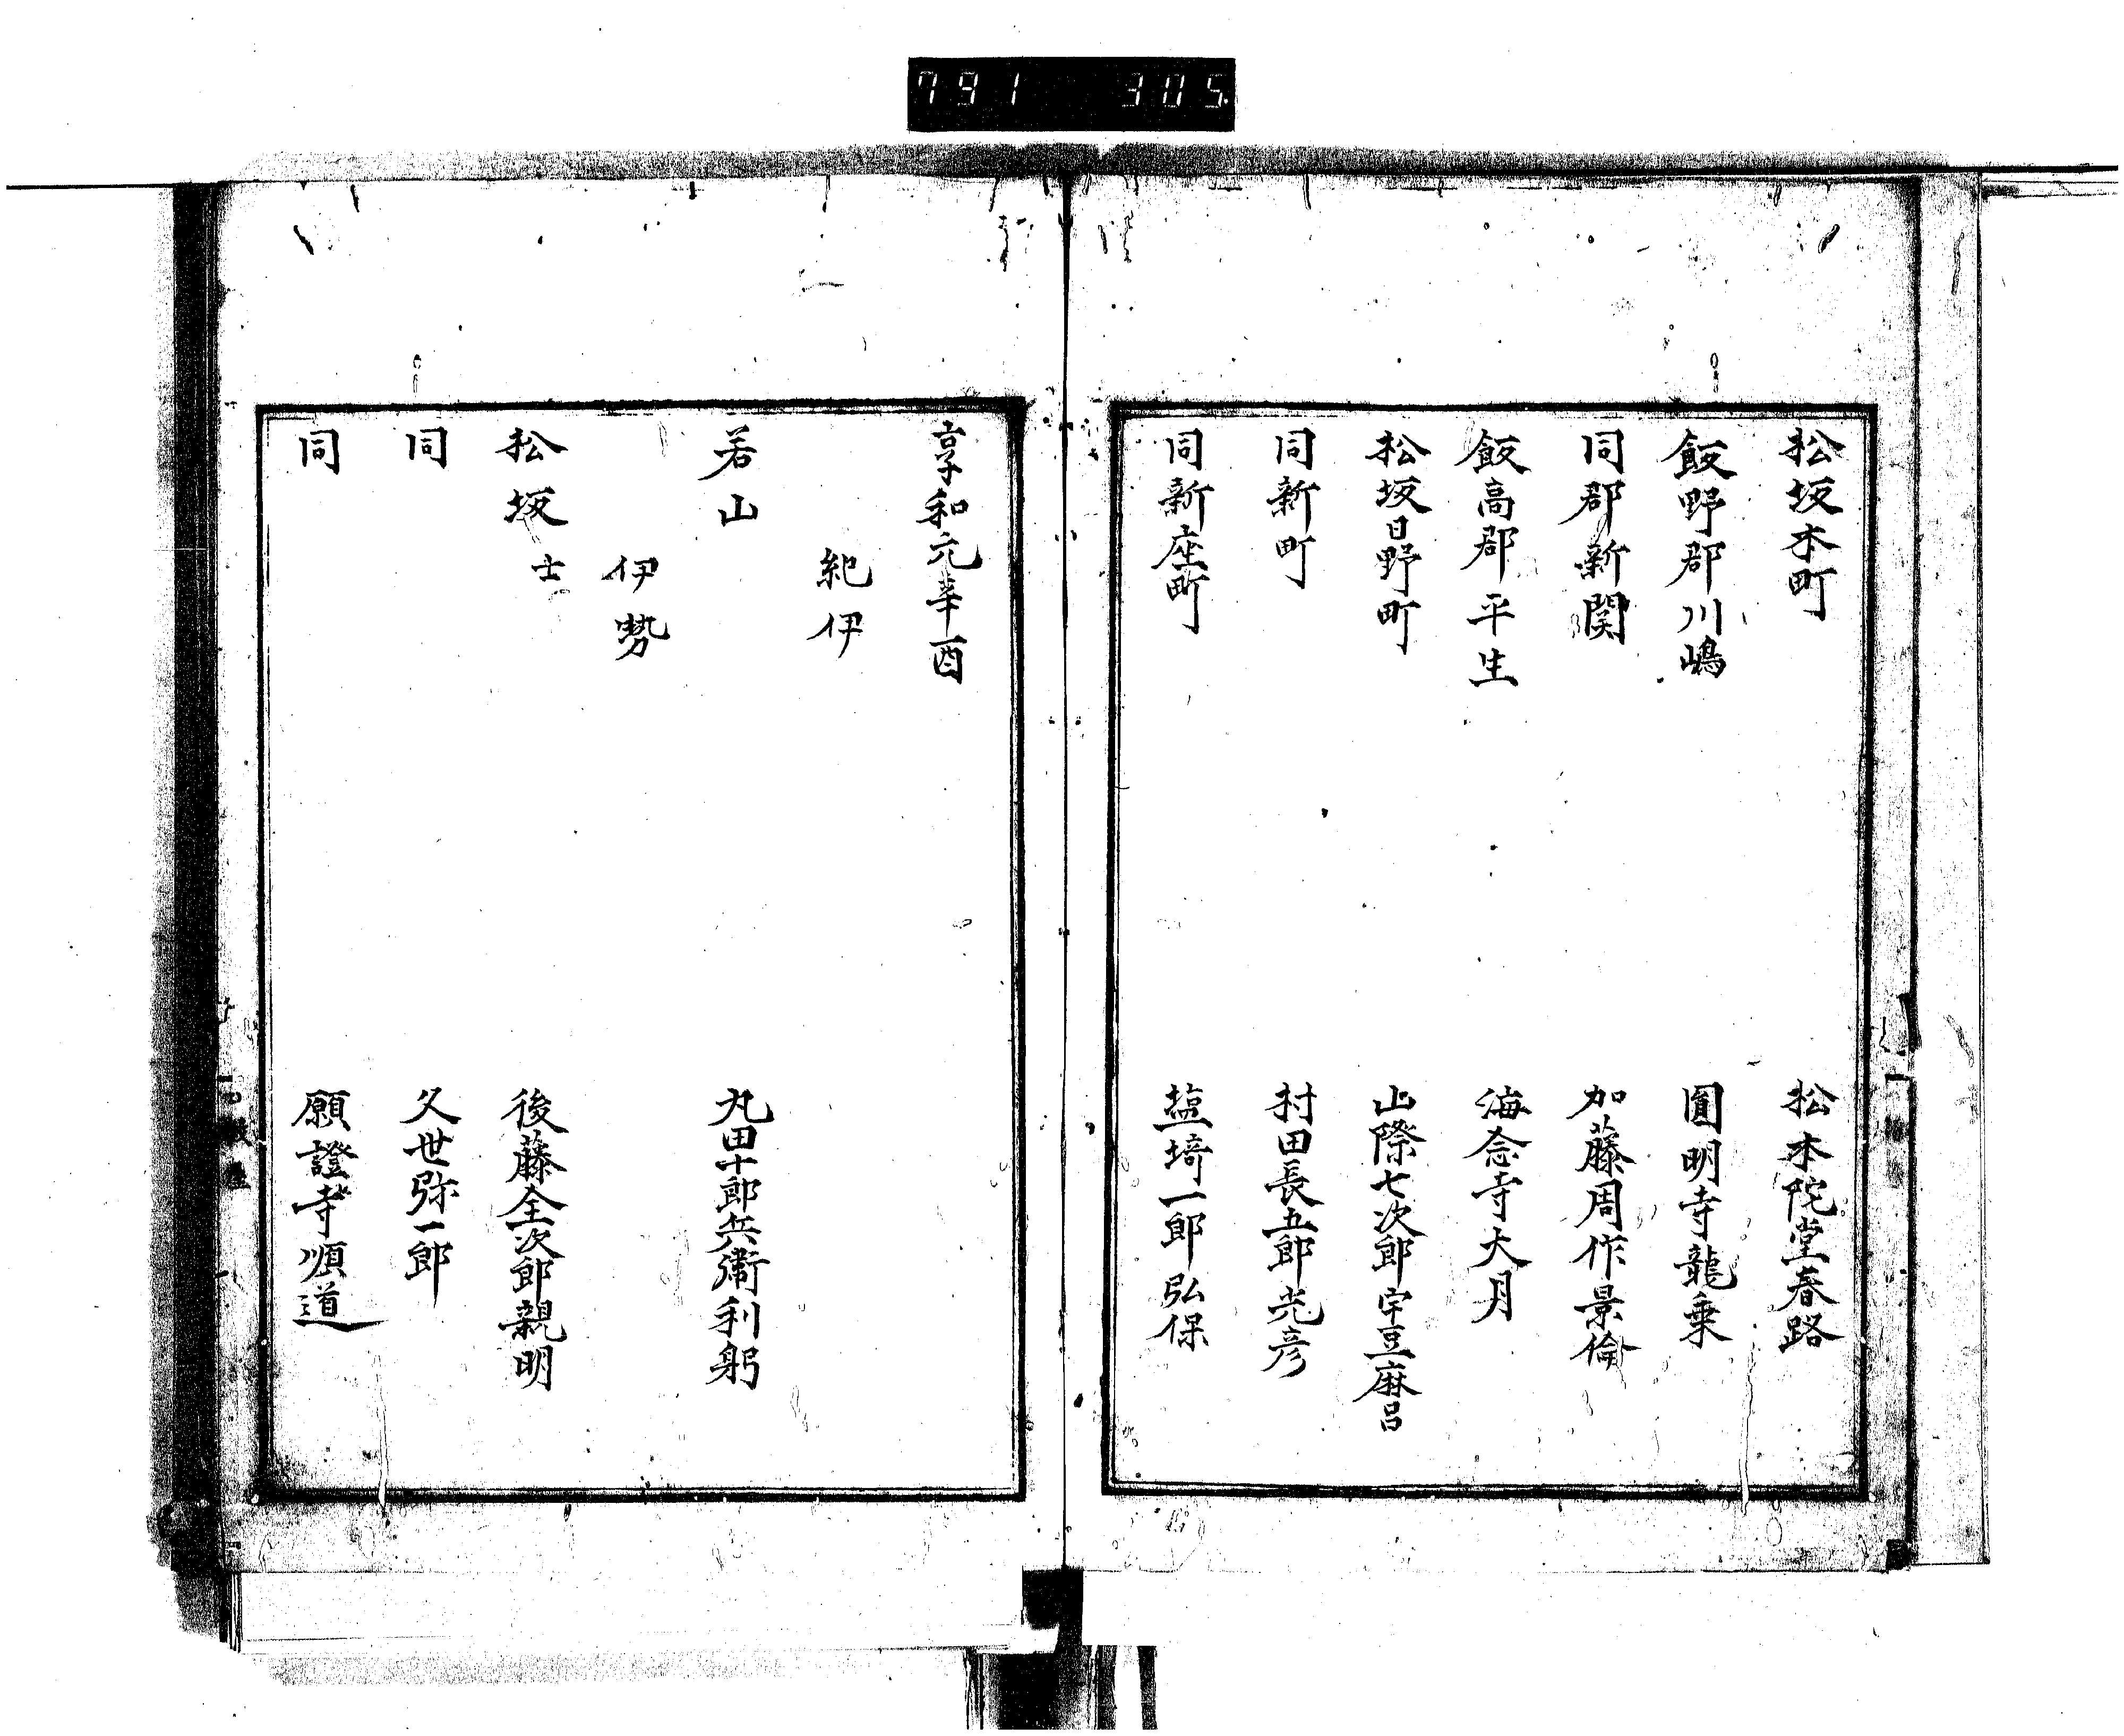 791 305
松坂本町 松本陀堂春路
飯野郡川嶋 圓明寺龍乗
同郡新関 加藤周作景倫
飯高郡平生 海念寺大月
松坂日野町 山際七次郎宇豆麻呂
同新町 村田長五郎光彦
同新座町 塩埼一郎弘保
享和元辛酉
紀伊
若山 丸田十郎兵衛利躬
伊勢
松坂士 後藤全次郎親明
同 久世弥一郎
同 願證寺順道